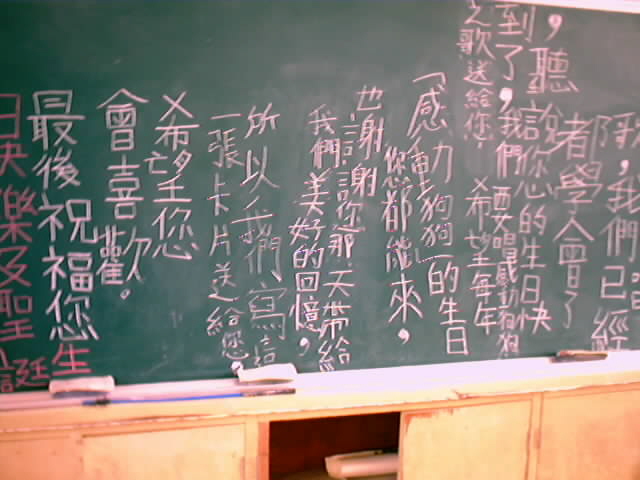 我們已經
學會了
，聽說您的生日快
到了，我們要唱感動狗狗
之歌送給你，希望每年
「感動狗狗」的生日
您都能來，
也謝謝你那天帶給
我們美好的回憶，
所以我們寫這
一張卡片送給您。
希望您
會喜歡。
最後祝福您生
日快樂及聖誕